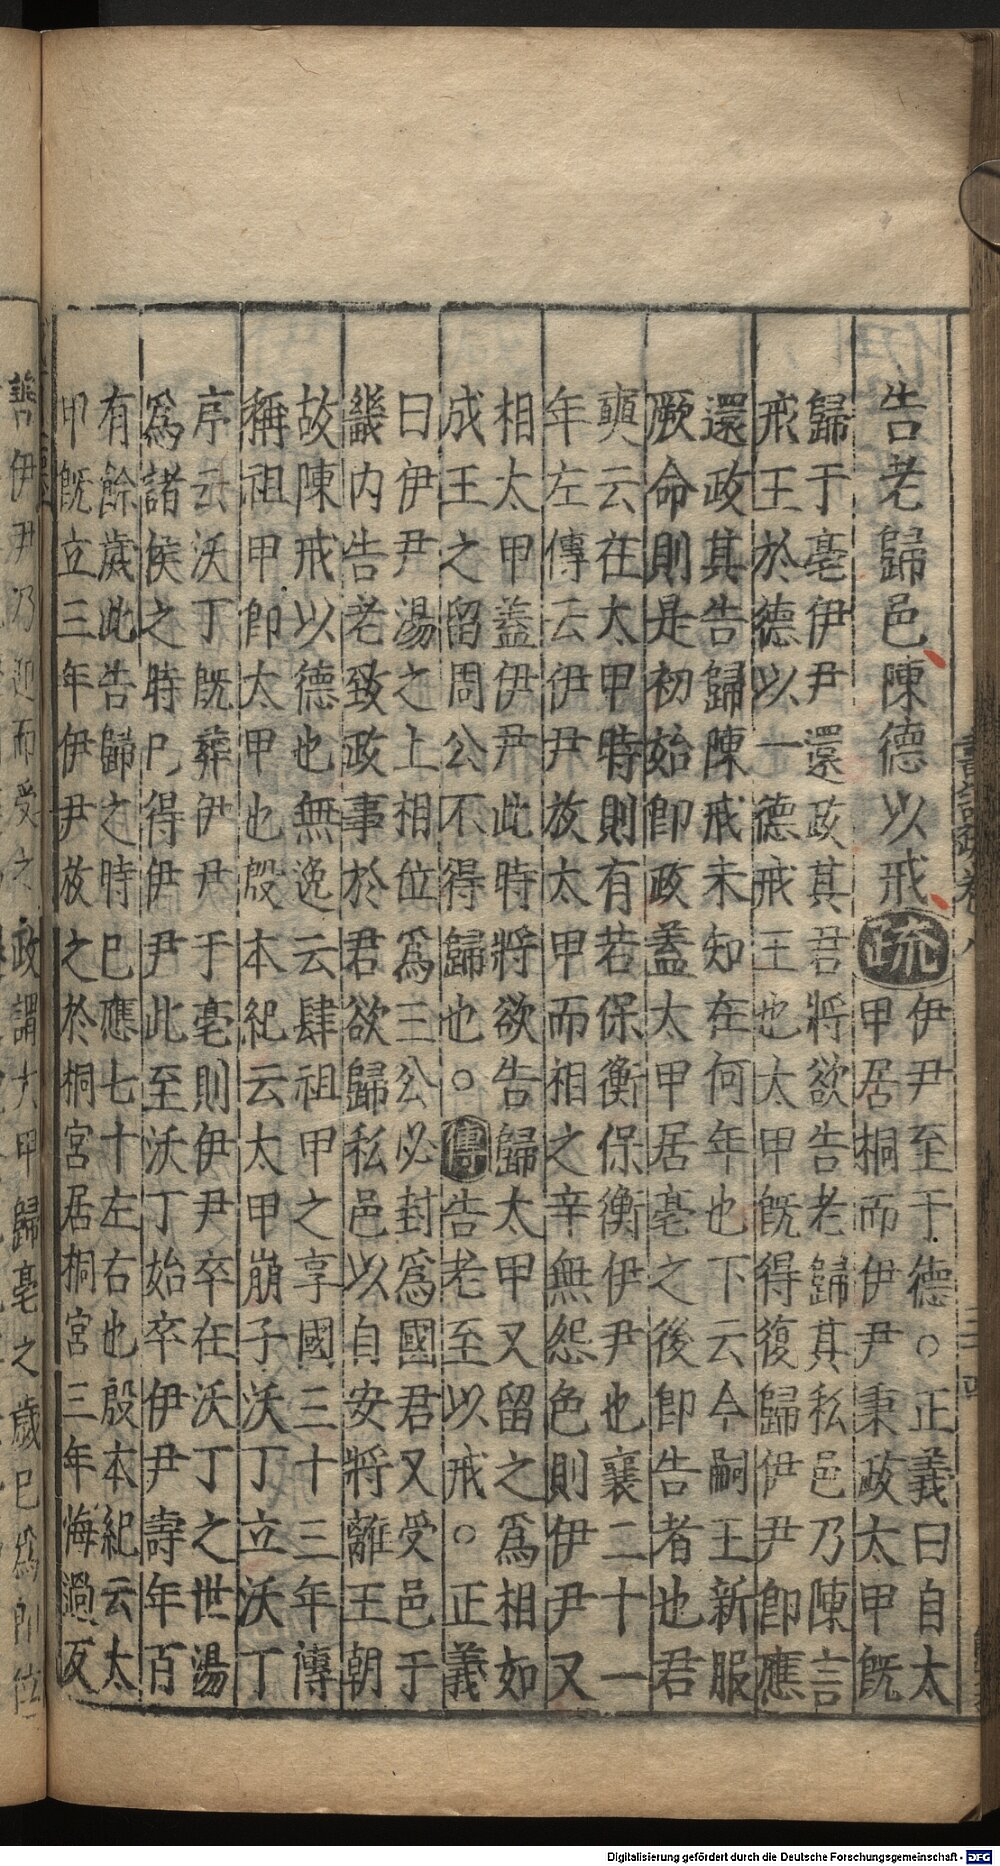 告老歸邑陳德以戒疏伊尹至于德○正義曰自太
甲居桐而伊尹秉政太甲旣
歸于亳伊尹還政其君將欲告老歸其私邑乃陳言
戒王於德以一德戒王也太甲旣得復歸伊尹卽應
還政其告歸陳戒未知在何年也下云今嗣王新服
厥命則是初始卽政蓋太甲居亳之後卽告者也君
奭云在太甲時則有若保衡保衡伊尹也襄二十一
年左傳云伊尹放太甲而相之卒無怨色則伊尹又
相太甲蓋伊尹此時將欲告歸太甲又留之爲相如
成王之留周公不得歸也○傳告老至以戒○正義
曰伊尹湯之上相位爲三公必封爲國君又受邑于
畿内告老致政事於君欲歸私邑以自安將離王朝
故陳戒以德也無逸云肆祖甲之享國三十三年傳
稱祖甲卽太甲也殷本紀云太甲崩子沃丁立沃丁
序云沃丁旣葬伊尹于亳則伊尹卒在沃丁之世湯
爲諸侯之時已得伊尹此至沃丁始卒伊尹壽年百
有餘歲此告歸之時已應七十左右也殷本紀云太
甲旣立三年伊尹放之於桐宮居桐宮三年悔過反
善伊尹乃迎而受之政謂太甲歸亳之歲已爲卽位
Digitalisierung gefördert durch die Deutsche Forschungsgemeinschaft - DFG